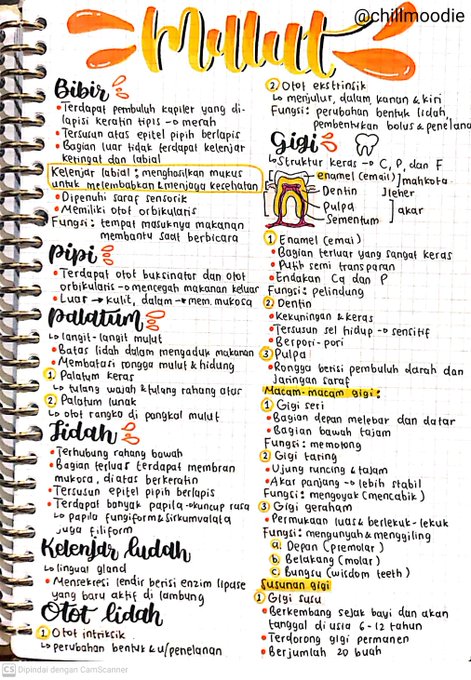 @chillmoodie
Mulut
Bibir
• Terdapat pembuluh kapiler yang di-
lapisi keratin tipis → merah
• Tersusun atas epitel pipih berlapis
• Bagian luar tidak terdapat kelenjar
keringat dan labial
Kelenjar labial : menghasilkan mukus
untuk melembabkan & menjaga kesehatan
• Dipenuhi saraf sensorik
• Memiliki otot orbikularis
Fungsi : tempat masuknya makanan
membantu saat berbicara
Pipi
• Terdapat otot buksinator dan otot
orbikularis → mencegah makanan keluar
• Luar → kulit, dalam → mem. mukosa
Palatum
↳ langit-langit mulut
• Batas lidah dalam mengaduk makanan
• Membatasi rongga mulut & hidung
1 Palatum keras
↳ tulang wajah & tulang rahang atas
2 Palatum lunak
↳ otot rangko di pangkal mulut
Lidah
• Terhubung rahang bawah
• Bagian terluar terdapat membran
mukosa, diatas berkeratin
• Tersusun epitel pipih berlapis
• Terdapat banyak papila → kuncup rasa
↳ papila fungiform & sirkumvalata
juga filiform
Kelenjar ludah
↳ lingual gland
• Mensekresi lendir berisi enzim lipase
yang baru aktif di lambung
Otot lidah
1 Otot intriksik
↳ perubahan bentuk & u/penelanan
2 Otot ekstrinsik
↳ menjulur, dalam, kanan & kiri
Fungsi : perubahan bentuk lidah,
pembentukan bolus & penelana
Gigi
↳ Struktur keras → C, P, dan F
enamel (email)
Dentin
Pulpa
Sementum
mahkota
leher
akar
1 Enamel (emai)
• Bagian terluar yang sangat keras
• Putih semi transparan
• Endakan Ca dan P
Fungsi : pelindung
2 Dentin
• Kekuningan & keras
• Tersusun sel hidup → sensitif
• Berpori-pori
3 Pulpa
• Rongga berisi pembuluh darah dan
jaringan saraf
Macam-macam gigi :
1 Gigi seri
• Bagian depan melebar dan datar
• Bagian bawah tajam
Fungsi : memotong
2 Gigi taring
• Ujung runcing & tajam
• Akar panjang → lebih stabil
Fungsi : mengoyak (mencabik)
3 Gigi geraham
• Permukaan luas & berlekuk-lekuk
Fungsi : mengunyah & menggiling
a. Depan (premolar)
b. Belakang (molar)
c. Bungsu (wisdom teeth)
Susunan gigi
1 Gigi susu
• Berkembang sejak bayi dan akan
tanggal di usia 6-12 tahun
• Terdorong gigi permanen
• Berjumlah 20 buah
CS Dipindai dengan CamScanner